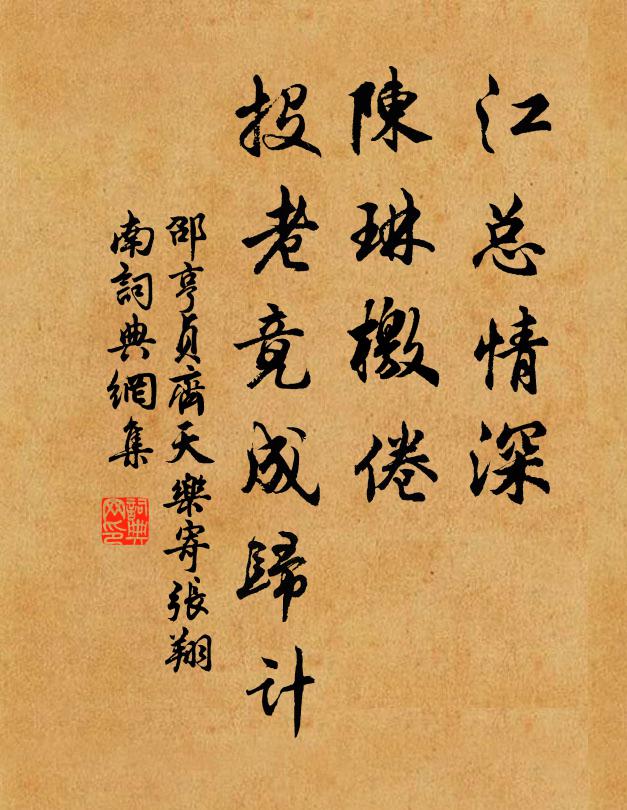 江总情深
陳琳檄倦
投老竟成歸計
邵亨貞齊天樂寄張翔
南詞典網集
詞典网印